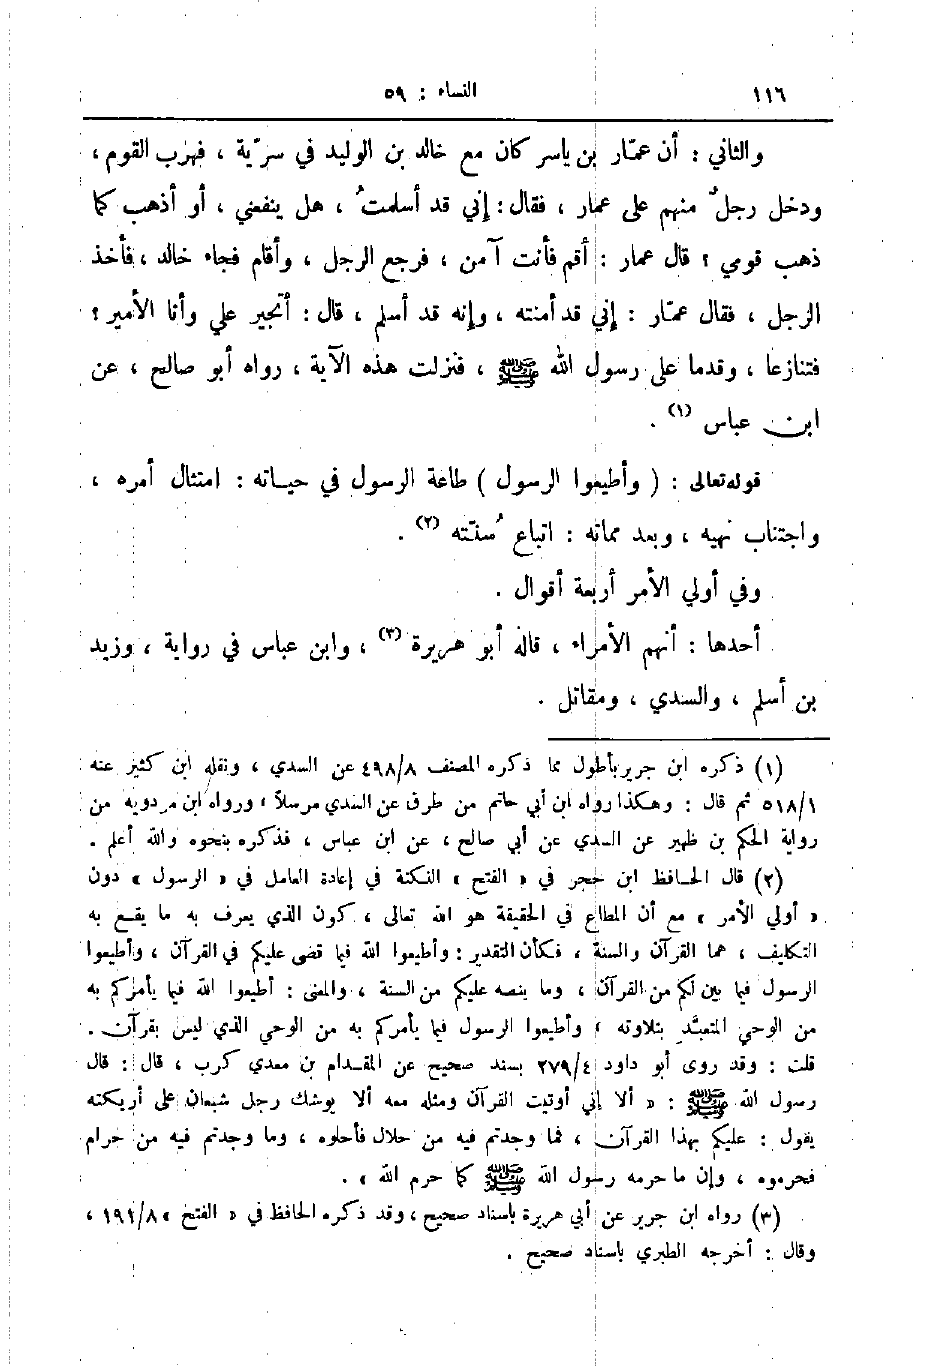 ١١٦ النساء : ٥٩
والثاني : أن عمّار بن ياسر كان مع خالد بن الوليد في سريّة ، فهرب القوم ،
ودخل رجلٌ منهم على عمار ، فقال : إني قد أسلمتُ ، هل ينفعني ، أو أذهب كما
ذهب قومي ؟ قال عمار : أقم فأنت آمن ، فرجع الرجل ، وأقام فجاء خالد ، فأخذ
الرجل ، فقال عمّار : إني قد أمنته ، وإنه قد أسلم ، قال : أتجير علي وأنا الأمير ؟
فتنازعا ، وقدما على رسول الله ﷺ ، فنزلت هذه الآية ، رواه أبو صالح ، عن
ابن عباس (١) .
قوله تعالى : ( وأطيعوا الرسول ) طاعة الرسول في حياته : امتثال أمره ،
واجتناب نهيه ، وبعد مماته : اتباع سُنّته (٢) .
وفي أولي الأمر أربعة أقوال .
أحدها : أنهم الأمراء ، قاله أبو هريرة (٣) ، وابن عباس في رواية ، وزيد
بن أسلم ، والسدي ، ومقاتل .
(١) ذكره ابن جرير بأطول مما ذكره المصنف ٤٩٨/٨ عن السدي ، ونقله ابن كثير عنه
٥١٨/١ ثم قال : وهكذا رواه ابن أبي حاتم من طرق عن السدي مرسلاً ، ورواه ابن مردويه من
رواية الحكم بن ظهير عن السدي عن أبي صالح ، عن ابن عباس ، فذكره بنحوه والله أعلم .
(٢) قال الحافظ ابن حجر في « الفتح » النكتة في إعادة العامل في « الرسول » دون
« أولي الأمر » مع أن المطاع في الحقيقة هو الله تعالى ، كون الذي يعرف به ما يقع به
التكليف ، هما القرآن والسنة ، فكأن التقدير : وأطيعوا الله فيما قضى عليكم في القرآن ، وأطيعوا
الرسول فيما بين لكم من القرآن ، وما ينصه عليكم من السنة ، والمعنى : أطيعوا الله فيما يأمركم به
من الوحي المتعبَّد بتلاوته ، وأطيعوا الرسول فيما يأمركم به من الوحي الذي ليس بقرآن .
قلت : وقد روى أبو داود ٢٧٩/٤ بسند صحيح عن المقدام بن معدي كرب ، قال : قال
رسول الله ﷺ : « ألا إني أوتيت القرآن ومثله معه ألا يوشك رجل شبعان على أريكته
يقول : عليكم بهذا القرآن ، فما وجدتم فيه من حلال فأحلوه ، وما وجدتم فيه من حرام
فحرموه ، وإن ما حرمه رسول الله ﷺ كما حرم الله » .
(٣) رواه ابن جرير عن أبي هريرة بإسناد صحيح ، وقد ذكره الحافظ في « الفتح » ١٩١/٨ ،
وقال : أخرجه الطبري بإسناد صحيح .